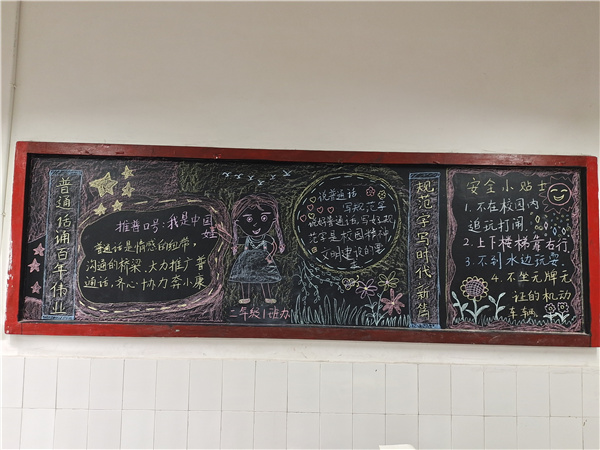 普通话诵百年伟业
推普口号:我是中国
娃
普通话是情感的纽带,
沟通的桥梁,大力推广普
通话,齐心协力奔小康
二年级1中队
说普通话
写规范字
说好普通话,写好规
范字是校园精神
文明建设的要
规范字写时代新篇
安全小贴士
1.不在校园内
追玩打闹
2.上下楼梯靠右行
3.不到水边玩耍
4.不坐无牌无
证的机动
车辆